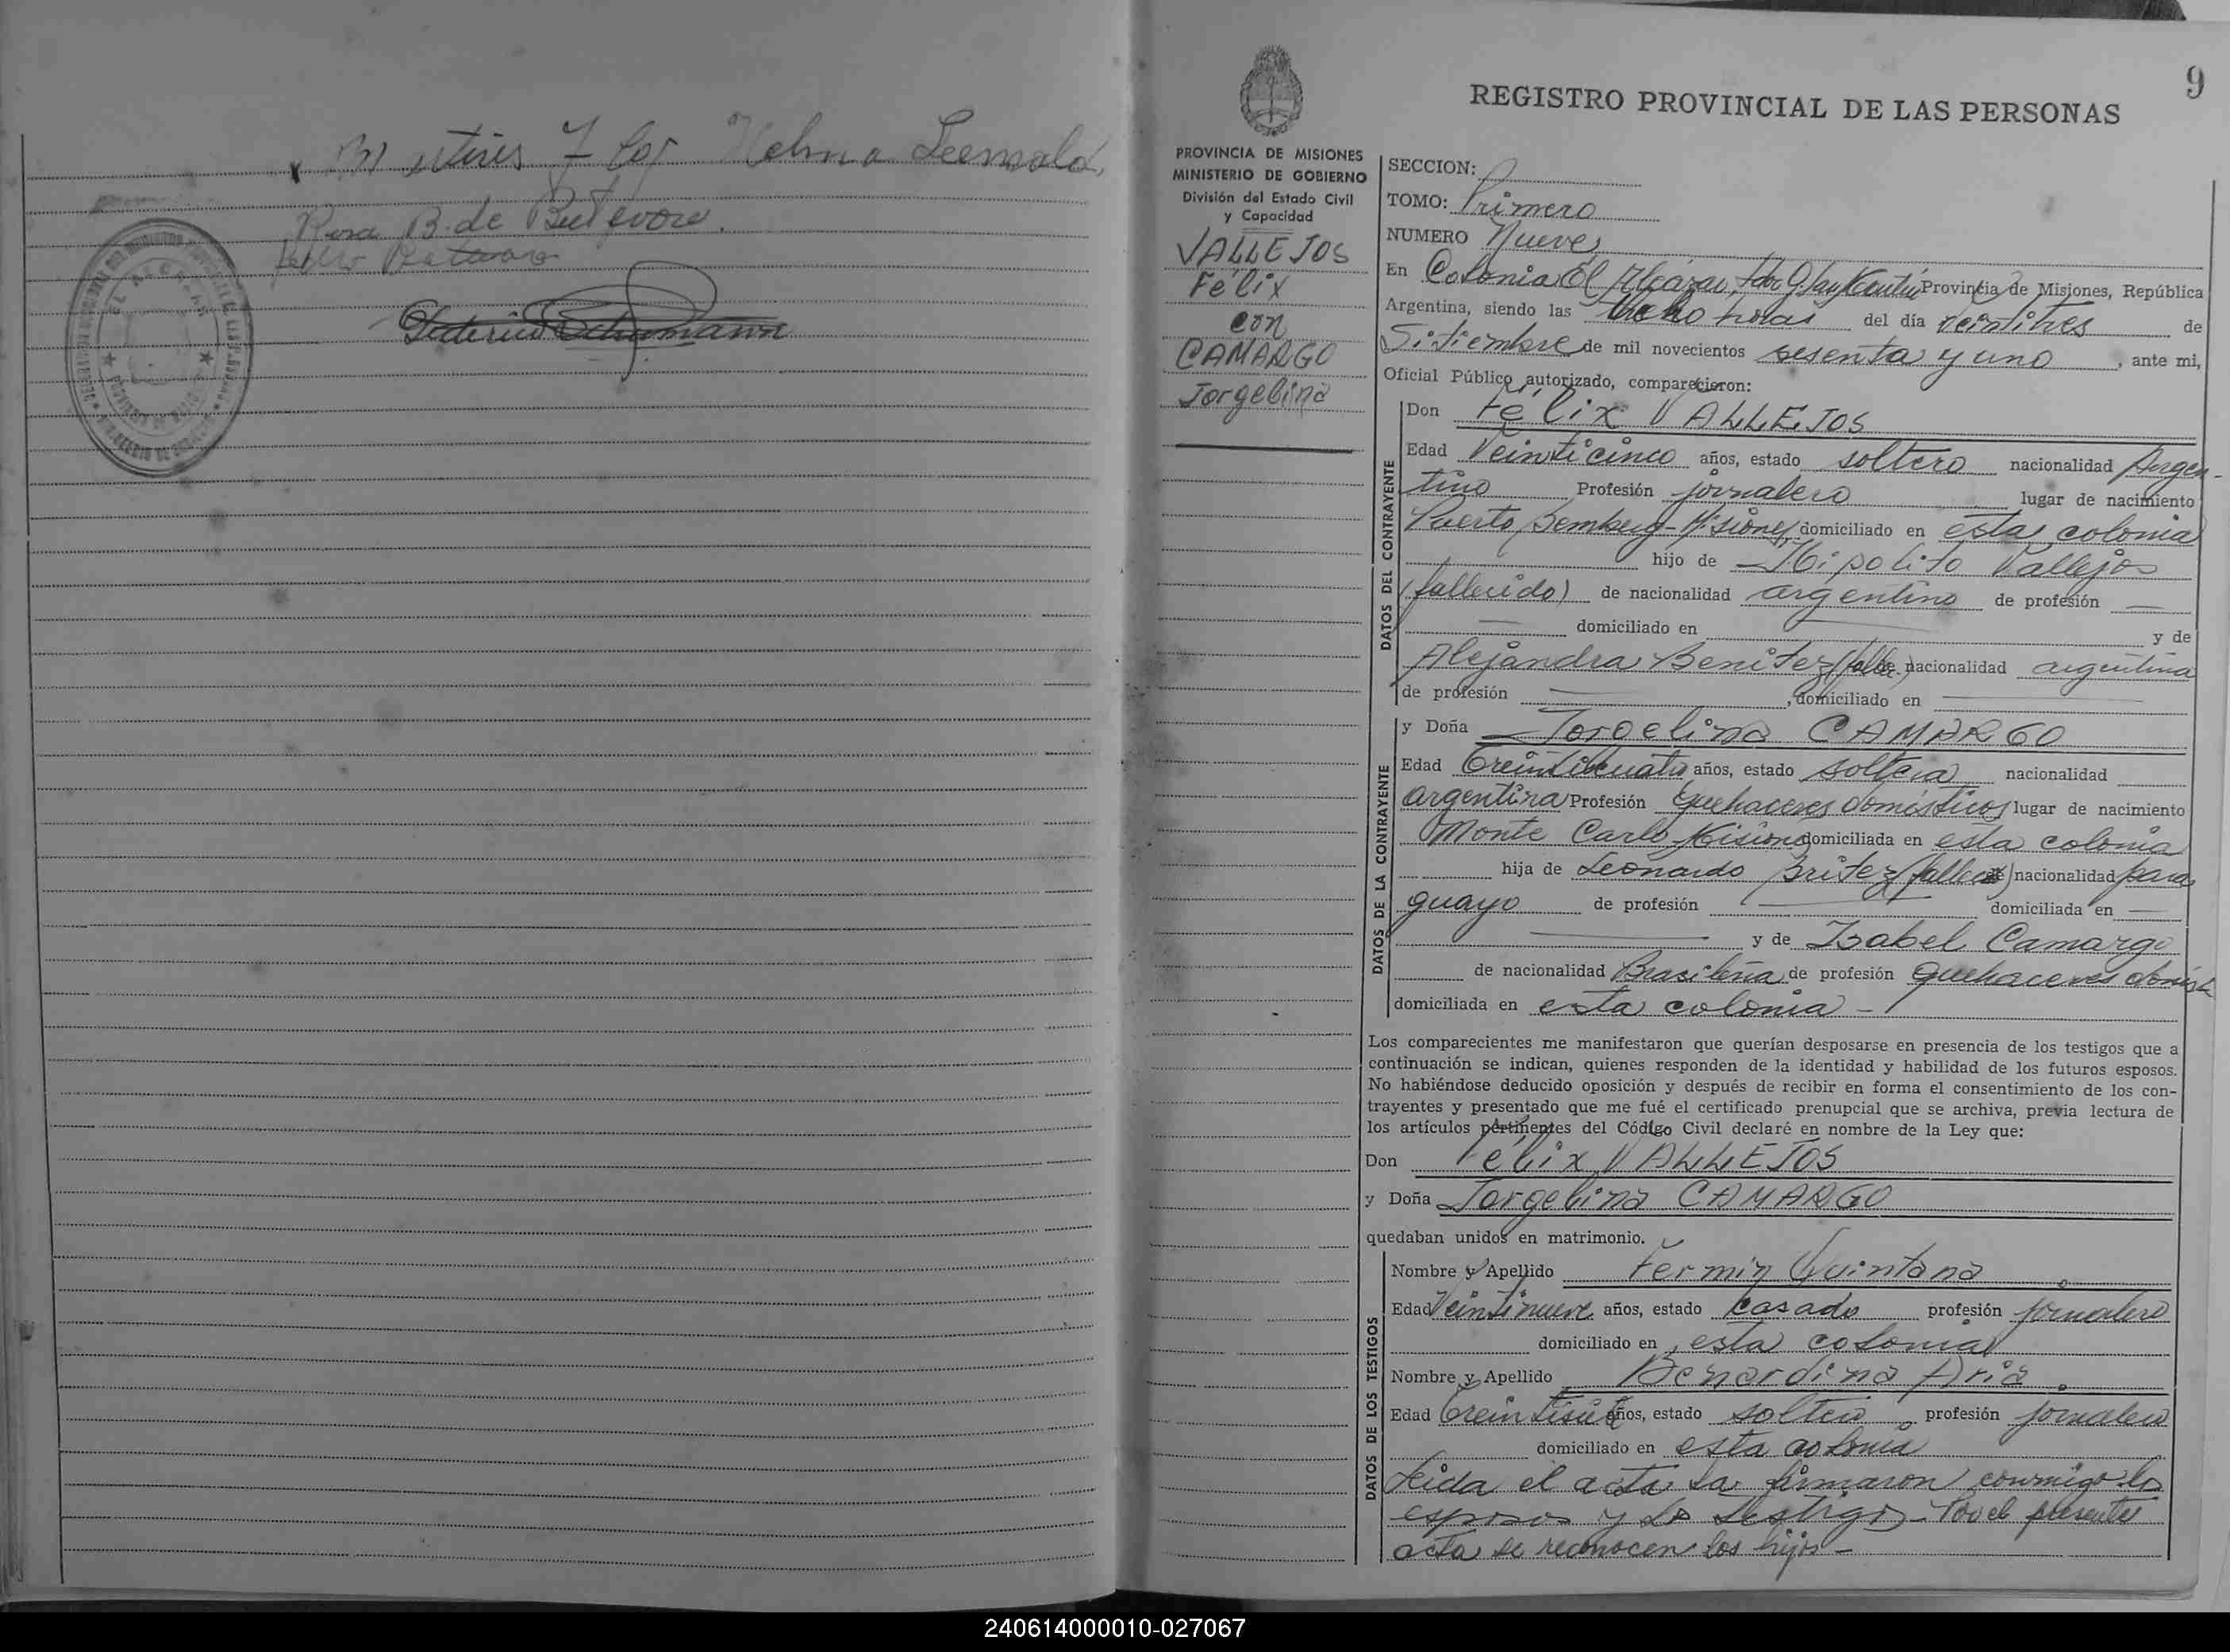 Helma
Rosa B. de
Federico Schumann
9
REGISTRO PROVINCIAL DE LAS PERSONAS
PROVINCIA DE MISIONES
MINISTERIO DE GOBIERNO
División del Estado Civil
y Capacidad
VALLEJOS
Félix
con
CAMARGO
Jorgelina
SECCION:
TOMO: Primero
NUMERO Nueve
En Colonia El Alcázar, Provincia de Misiones, República
Argentina, siendo las horas del día veintitres de
Setiembre de mil novecientos sesenta y uno, ante mi,
Oficial Público autorizado, comparecieron:
DATOS DEL CONTRAYENTE
Don Félix VALLEJOS
Edad Veinticinco años, estado soltero nacionalidad Argen-
tino Profesión jornalero lugar de nacimiento
Puerto Bemberg-Misiones, domiciliado en esta colonia
hijo de Hipolito Vallejos
(fallecido) de nacionalidad argentino de profesión —
— domiciliado en — y de
Alejandra Benitez (falle.) de nacionalidad argentina
de profesión —, domiciliado en —
DATOS DE LA CONTRAYENTE
y Doña Jorgelina CAMARGO
Edad treinticuatro años, estado soltera nacionalidad
argentina Profesión quehaceres domésticos lugar de nacimiento
Monte Carlo Misiones domiciliada en esta colonia
hija de Leonardo Britez nacionalidad para
guayo de profesión — domiciliada en —
— y de Isabel Camargo
de nacionalidad Brasileña de profesión quehaceres domést
domiciliada en esta colonia -
Los comparecientes me manifestaron que querían desposarse en presencia de los testigos que a
continuación se indican, quienes responden de la identidad y habilidad de los futuros esposos.
No habiéndose deducido oposición y después de recibir en forma el consentimiento de los con-
trayentes y presentado que me fué el certificado prenupcial que se archiva, previa lectura de
los artículos pertinentes del Código Civil declaré en nombre de la Ley que:
Don Félix VALLEJOS
y Doña Jorgelina CAMARGO
quedaban unidos en matrimonio.
DATOS DE LOS TESTIGOS
Nombre y Apellido Fermin Quintana
Edad Veintinueve años, estado casado profesión jornalero
domiciliado en esta colonia
Nombre y Apellido Benardina Aria
Edad treintisiete años, estado soltero profesión jornalero
domiciliado en esta colonia
Leida el acta la firmaron conmigo los
esposos y los testigos - Por el presente
acta se reconocen los hijos -
240614000010-027067